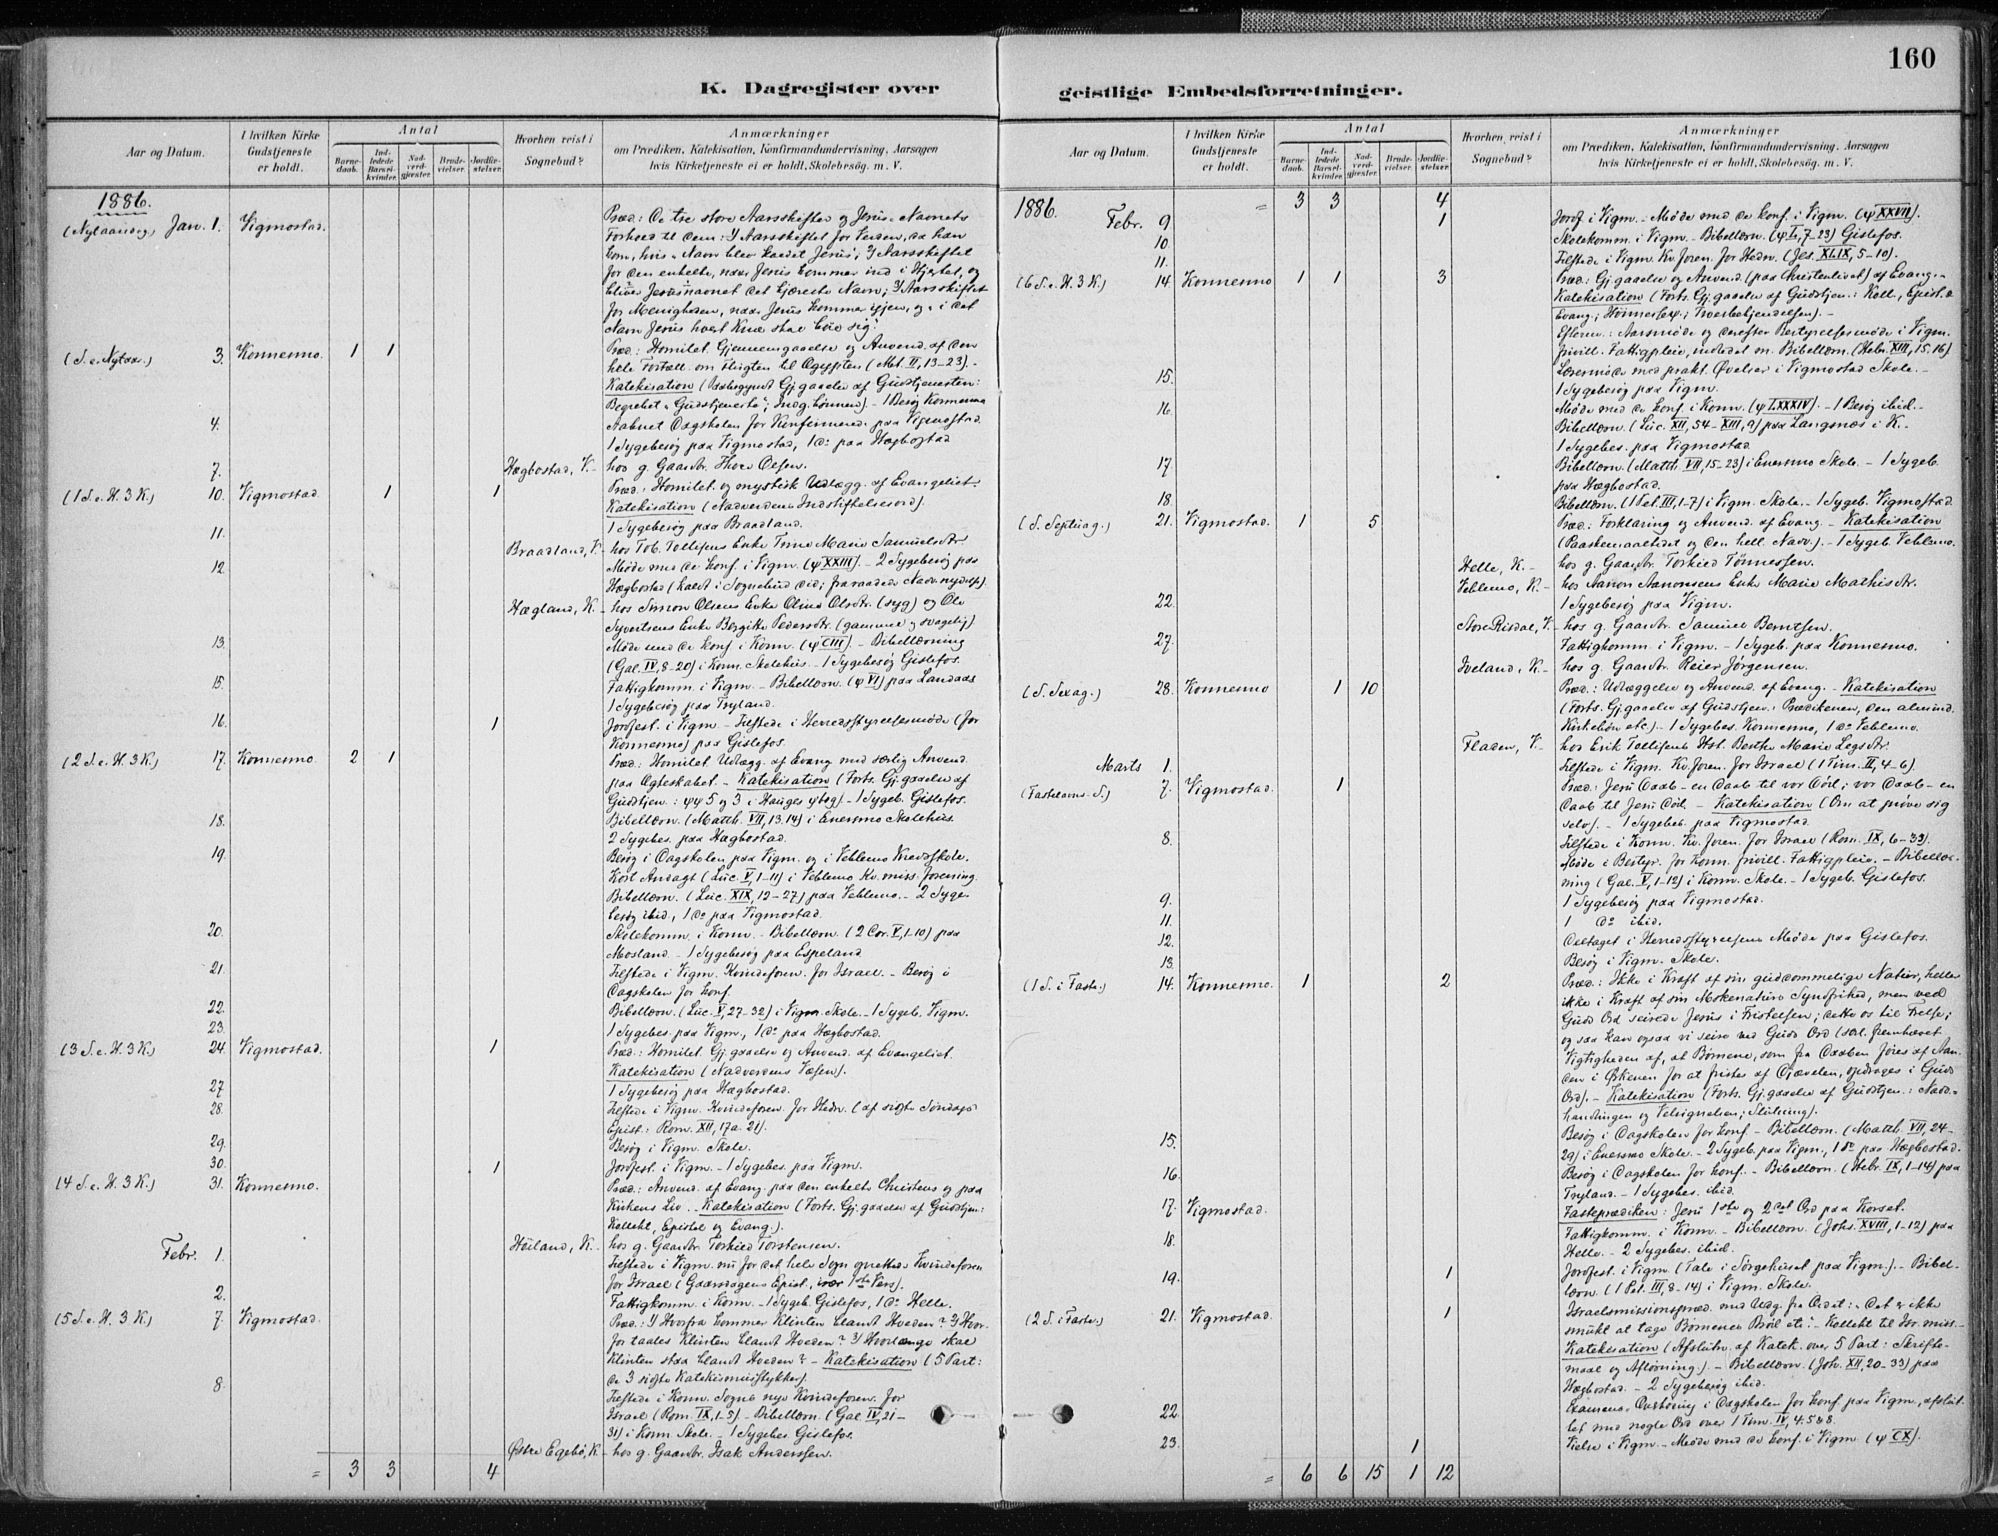 160
K. Dagregister over
geistlige Embedsforretninger.
Aar og Datum.
I hvilken Kirke Gudstjeneste er holdt.
Antal
Barnedaab.
Indledede Barselkvinder.
Nadverdgjester.
Brudevielser.
Jordfæstelser.
Hvorhen reist i Sognebud?
Anmærkninger
om Prædiken, Katekisation, Konfirmandundervisning, Aarsagen
hvis Kirketjeneste ei er holdt, Skolebesøg. m. V.
1886.
(Nytaarsdag) Jan. 1. Vigmostad. Præd.: De tre store Aarsskifter og Jesus-Navnets
Forhold til dem: 1/ Aarsskiftet for Verden, da han
kom, hvis Navn blev kaldet Jesus; 2/ Aarsskiftet
for den enkelte, naar Jesus kommer ind i Hjertet, og
bliver Jesusnavnet det kjæreste Navn; 3/ Aarsskiftet
for Menigheden, naar Jesus komma igjen, og i det
Navn Jesus hvert Knæ skal bøie sig.
(S. e. Nytaar.) 3. Konnesmo. 1 1 Præd.: Homilet. Gjennemgaaelse og Anvend. af den
hele Fortæll. om Flugten til Ægypten (Mat. II, 13-23).-
Katekisation (Paabegyndt Gj.gaaelse af Gudstjenesten:
Begrebet "Gudstjeneste"; Indg.bønnen).- 1 Besøg Konnesmo
4. Aabnet Dagskolen for Konfirmand. paa Vigmostad.
1 Sygebesøg paa Vigmostad, 1 do paa Hægbostad
7. Hægbostad, V.- hos g. Gaardbr. Thore Olsen.
(1 S. e. H. 3 K.) 10. Vigmostad. 1 1 Præd.: Homilet. og mystisk Udlægg. af Evangeliet.
Katekisation (Nadverdens Indstiftelsesord).
11. 1 Sygebesøg paa Braadland.
Braadland, V.- hos Tob. Tollefsens Enke Trine Marie Samuelsdtr.
12. Møde med de konf. i Vigm. (ψ XXIII).- 2 Sygebesøg paa
Hægbostad (kaldt i Sognebud did; fraraadede Nadv.nydelse).
Hægland, K.- hos Simon Olsens Enke Olina Olsdtr. (syg) og Ole
Syvertsens Enke Bergitte Pedersdtr. (gammel og svagelig)
13. Møde med de konf. i Konn. (ψ CIII).- Bibellæsning
(Gal. IV, 8-20) i Konn. Skolehus.- 1 Sygebesøg Gislefos.
15. Fattigkomm. i Vigm.- Bibellæsn. (ψ VI) paa Landaas
1 Sygebesøg paa Tryland.
16. 1 Jordfest. i Vigm.- Tilstede i Herredsstyrelsesmøde (for
Konnesmo) paa Gislefos.
(2 S. e. H. 3 K.) 17. Konnesmo. 2 1 Præd.: Homilet. Udlægg. af Evang. med særlig Anvend.
paa Ægteskabet.- Katekisation (Forts. Gj.gaaelse af
Gudstjen.: ψψ 5 og 3 i Hauges ψbog).- 1 Sygeb. Gislefos.
18. Bibellæsn. (Matth. VII, 13.14) i Enersmo Skolehus.
2 Sygebes. paa Hægbostad.
19. Besøg i Dagskolen paa Vigm. og i Veblemo Kredsskole.
Kort Andagt (Luc. V, 1-11) i Veblemo Kv.miss.forening.
Bibellæsn. (Luc. XIX, 12-27) paa Veblemo.- 2 Syge-
besøg ibid., 1 do paa Vigmostad.
20. Skolekomm. i Konn.- Bibellæsn. (2 Cor. V, 1-10) paa
Mosland.- 1 Sygebesøg paa Espeland
21. Tilstede i Vigm. Kvindeforen. for Israel.- Besøg i
Dagskolen for konf.
22. Bibellæsn. (Luc. V, 27-32) i Vigm. Skole.- 1 Sygeb. Vigm.
23. 1 Sygebes. paa Vigm., 1 do paa Hægbostad.
(3 S. e. H. 3 K.) 24. Vigmostad. 1 Præd.: Homilet. Gj.gaaelse og Anvend. af Evangeliet.
Katekisation (Nadverdens Væsen).
27 1 Sygebesøg paa Hægbostad.
28. Tilstede i Vigm. Kvindeforen. for Hedn. (af sidste Søndags
Epist.: Rom. XII, 17a. 21).
29. Besøg i Vigm. Skole.
30. 1 Jordfest. i Vigm.- 1 Sygebes. paa Vigm.
(4 S. e. H. 3 K.) 31. Konnesmo. Præd.: Anvend. af Evang. paa den enkelte Christens og paa
Kirkens Liv.- Katekisation (Forts. Gj.gaaelse af Gudstjen:
Kollekt, Epistel og Evang.).
Febr. 1. Høiland, K.- hos g. Gaardbr. Torkild Torstensen.
Tilstede i Vigm. nu for det hele Sogn oprettede Kvindeforen
for Israel (Gaarsdagens Epist., især 1ste Vers).
2. Fattigkomm. i Konn.- 1 Sygeb. Gislefos, 1 do Helle.
(5 S. e. H. 3 K.) 7. Vigmostad. Præd.: 1/ Hvorfra kommer Klinten blandt Hveden? 2/ Hvor-
for taales Klinten blandt Hveden? 3/ Hvorlænge skal
Klinten staa blandt Hveden?- Katekisation (5 Part:
de 3 sidste Katekismusstykker).
8. Tilstede i Konn. Sogns nye Kvindeforen. for
Israel (Rom. IX, 1-5).- Bibellæsn. (Gal. IV, 21-
31) i Konn. Skole.- 1 Sygebes. Gislefos.
Østre Egebø, K.- hos g. Gaardbr. Isak Anderssen.
= 3 3 4
Aar og Datum.
I hvilken Kirke Gudstjeneste er holdt.
Antal
Barnedaab.
Indledede Barselkvinder.
Nadverdgjester.
Brudevielser.
Jordfæstelser.
Hvorhen reist i Sognebud?
Anmærkninger
om Prædiken, Katekisation, Konfirmandundervisning, Aarsagen
hvis Kirketjeneste ei er holdt, Skolebesøg. m. V.
1886. = 3 3 4
Febr. 9 1 Jordf. i Vigm.- Møde med de konf. i Vigm. (ψ XXVII).
10. Skolekomm. i Vigm.- Bibellæsn. (ψ L, 7-23) Gislefos.
11. Tilstede i Vigm. Kv.foren. for Hedn. (Jes. XLIX, 5-10).
(6 S. e. H. 3 K.) 14. Konnesmo 1 1 3 Præd.: Gj.gaaelse og Anvend. (paa Christenlivet) af Evang.-
Katekisation (Forts. Gj.gaaelse af Gudstjen.: Koll., Epist. &
Evang.; Trosbekjendelsen).-
Efterm.: Aarsmøde og derefter Bestyrelsesmøde i Vigm.
frivill. Fattigpleie, indledet m. Bibellæsn. (Hebr. XIII, 15.16)
15. Lærermøde med prakt. Øvelser i Vigmostad Skole.-
1 Sygebesøg paa Vigm.
16. Møde med de konf. i Konn. (ψ LXXXIV).- 1 Besøg ibid.-
Bibellæsn. (Luc. XII, 54-XIII, 9) paa Langsnes i K.-
1 Sygebes. paa Vigmostad
17. Bibellæsn. (Matth. VII, 15-23) i Enersmo Skole.- 1 Sygeb.
paa Hægbostad.
18 Bibellæsn. (1 Pet. III, 1-7) i Vigm. Skole.- 1 Sygeb. Vigmostad.
(S. Septuag.) 21. Vigmostad. 1 5 Præd.: Forklaring og Anvend. af Evang.- Katekisation
(Paaskemaaltidet og den hell. Nadv.).- 1 Sygeb. Veblemo.
Helle, K.- hos g. Gaardbr. Torkild Tønnessen.
Veblemo, K.- hos Aanon Aanonsens Enke Marie Mathisdtr.
22. 1 Sygebesøg paa Vigm.
Store Risdal, V.- hos g. Gaardbr. Samuel Berntsen.
27. Fattigkomm. i Vigm.- 1 Sygeb. paa Konnesmo.
Iveland, K.- hos g. Gaardbr. Reier Jørgensen.
(S. Sexag.) 28. Konnesmo 1 10 Præd.: Udlæggelse og Anvend. af Evang.- Katekisation
(Forts. Gj.gaaelse af Gudstjen.: Prædikenen, den almind.
Kirkebøn etc.).- 1 Sygebes. Konnesmo, 1 do Veblemo.
Fladen, V.- hos Erik Tollefsens Hst. Berthe Marie Legsdtr.
Marts 1. Tilstede i Vigm. Kv.foren. for Israel (1 Tim. II, 4-6).
(Fastelavns-S.) 7. Vigmostad. 1 Præd.: Jesu Daab - en Daab til vor Død; vor Daab - en
Daab til Jesu Død.- Katekisation (Om at prøve sig
selv).- 1 Sygebes. paa Vigmostad.
8. Tilstede i Konn. Kv.foren. for Israel (Rom. IX, 6-33).
Møde i Bestyr. for Konn. frivill. Fattigpleie.- Bibellæs-
ning (Gal. V, 1-12) i Konn. Skole.- 1 Sygeb. Gislefos.
9. 1 Sygebesøg paa Vigmostad.
11. 1 do ibid.
12. Deltaget i Herredsstyrelsens Møde paa Gislefos.
13. Besøg i Vigm. Skole.
(1 S. i Faste.) 14. Konnesmo. 1 2 Præd.: Ikke i Kraft af sin guddommelige Natur, heller
ikke i Kraft af sin Mskenaturs Syndfrihed, men ved
Guds Ord seirede Jesus i Fristelsen; dette os til Frelse;
og saa kan ogsaa vi seire ved Guds Ord (særl. fremhævet
Vigtigheden af, at Børnene, som fra Daaben føres af Aan-
den i Ørkenen for at fristes af Djævelen, opdrages i Guds
Ord).- Katekisation (Forts. Gj.gaaelse af Gudstjen.: Nadv.-
handlingen og Velsignelsen; Slutning).
15. Besøg i Dagskolen for konf.- Bibellæsn. (Matth. VII, 24-
29) i Enersmo Skole.- 2 Sygeb. paa Vigm., 1 do paa Hægbostad.
16. Besøg i Dagskolen for konf.- Bibellæsn. (Hebr. IX, 1-14) paa
Tryland.- 1 Sygebes. ibid.
17. Vigmostad. Fasteprædiken: Jesu 1ste og 2det Ord paa Korset.
18. Fattigkomm. i Konn.- Bibellæsn. (Johs. XVIII, 1-12) paa
Helle.- 2 Sygebes. ibid.
19. 1 Jordfest. i Vigm. (Tale i Sørgehuset paa Vigm.).- Bibel-
læsn. (1 Pet. III, 8-14) i Vigm. Skole.
(2 S. i Faste.) 21. Vigmostad. 1 Israelsmissionspræd. med Udg. fra Ordet: "Det er ikke
smukt at tage Børnenes Brød etc."- Kollekt til Isr.miss.-
Katekisation (Afslutn. af Katek. over 5 Part: Skrifte-
maal og Afløsning).- Bibellæsn. (Joh. XII, 20-33) paa
Hægbostad.- 2 Sygebesøg ibid.
22. Examens-Overhøring i Dagskolen for konf. paa Vigm., afslut-
tet med nogle Ord over 1 Tim. IV, 4.5 & 8.
23. 1 Vielse i Vigm.- Møde med de konf. i Vigm. (ψ CX).
= 6 6 15 1 12